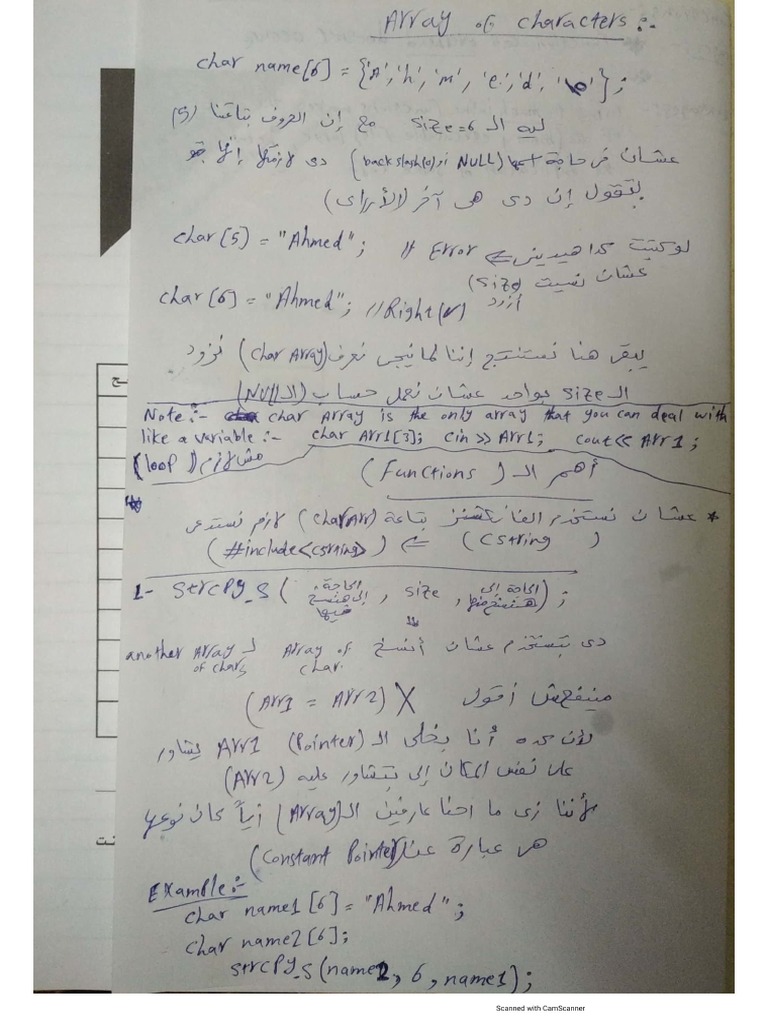 Array of characters :-
char name[6] = {'A','h','m','e','d','\0'} ;
ليه الـ size=6 مع إن الحروف بتاعتنا (5)
عشان في حاجة اسمها (NULL أو backslash(0)) دي لازمتها إنها
بتقول إن دي هي آخر (الأراى)
char[5] = "Ahmed" ; // Error ⇐ لو كتبت كدا هيديني
عشان نسيت (size) أزود
char[6] = "Ahmed" ; // Right(✓)
يبقى هنا نستنتج إننا لما نيجي نعرف (char Array) نزود
الـ size بواحد عشان نعمل حساب (الـ NULL)
Note:- char Array is the only array that you can deal with
like a variable :- char Arr1[3]; cin >> Arr1; cout << Arr1 ;
مش لازم (loop)
أهم الـ (Functions)
* عشان نستخدم الفانكشنز بتاعة (char Arr) لازم نستدعى
(cstring) ⇐ (#include<cstring>)
1- strcpy_s ( الحاجة إلى هننسخ فيها , size , الحاجة إلى هننسخ منها ) ;
دى بتستخدم عشان أنسخ Array of char لـ another Array of chars
مينفعش أقول (Arr1 = Arr2) X
لأن كده أنا بخلى الـ (Pointer) Arr1 يشاور
على نفس المكان إلى بتشاور عليه (Arr2)
لأننا زى ما احنا عارفين الـ (Array) أياً كان نوعها
هى عبارة عن (Constant Pointer)
Example:-
char name1[6] = "Ahmed" ;
char name2[6];
strcpy_s(name2, 6, name1);
Scanned with CamScanner